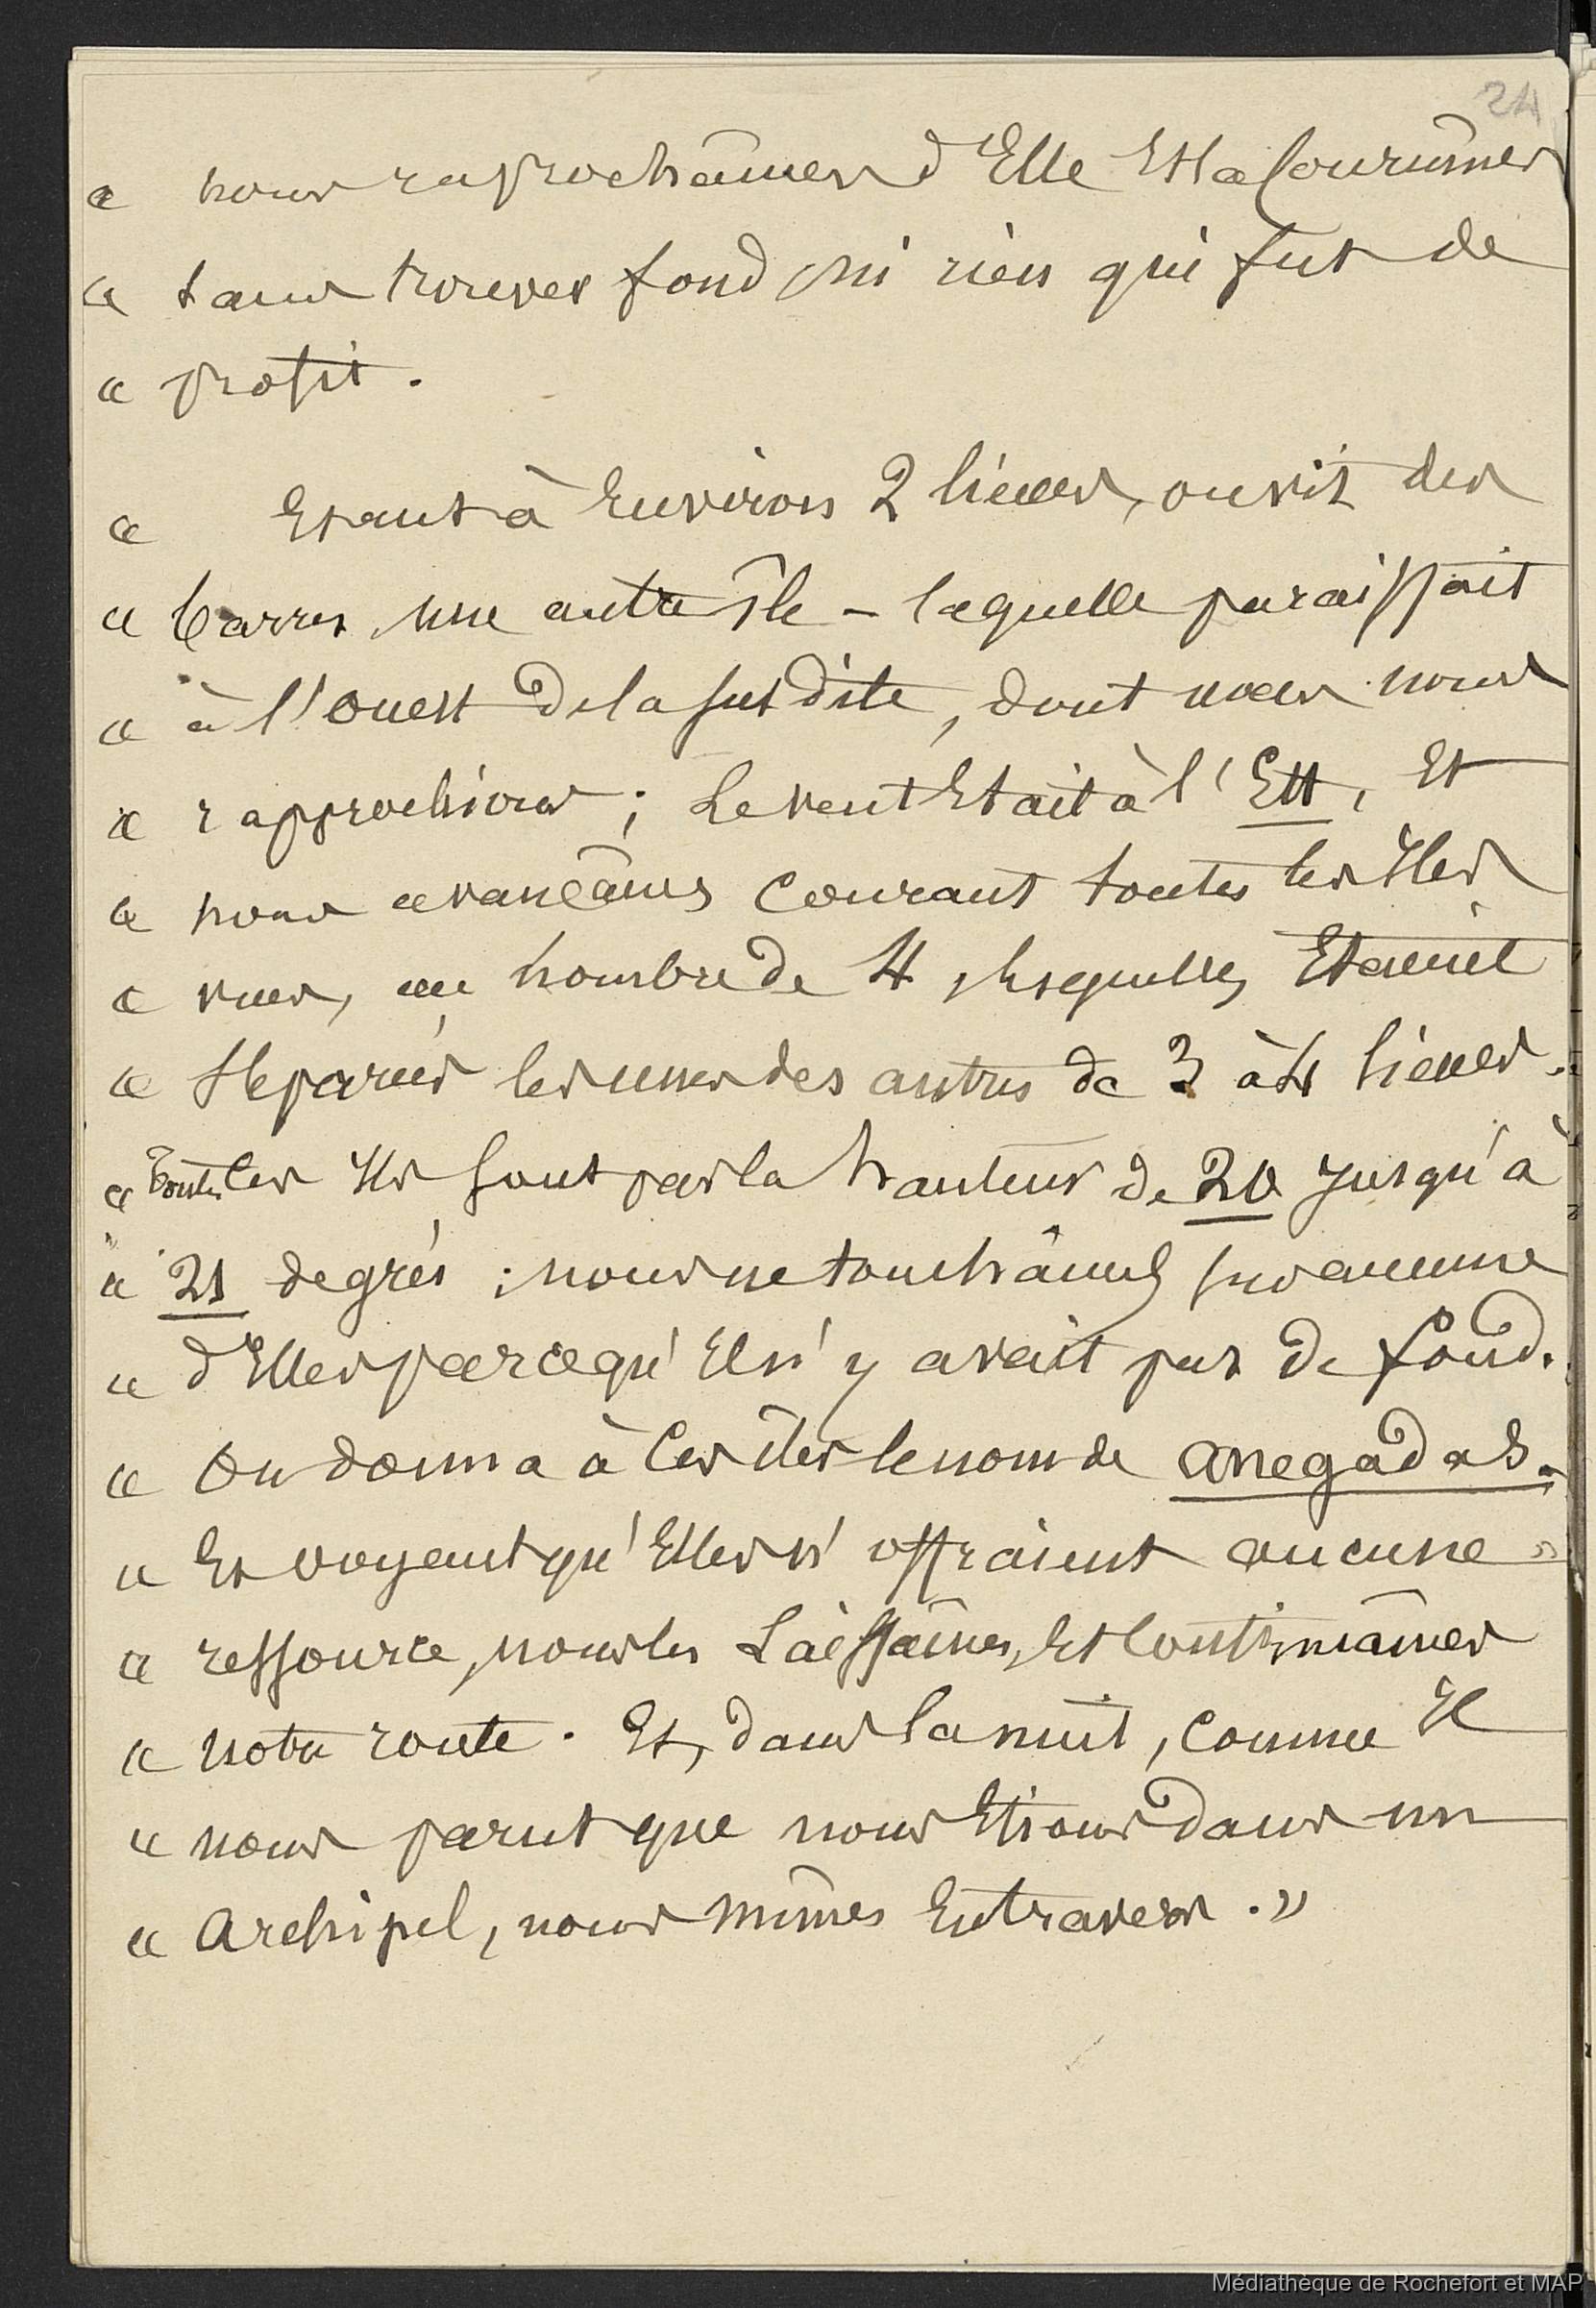 24
« nous raprochâmes d'Elle Et la Courûmes
« sans trouver fond, ni rien qui fut de
« profit.
« Etant à Environ 2 lieues, on vit des
« barres, une autre île – laquelle paraissait
« à l'ouest de la susdite, dont nous nous
« rapprochions ; Le vent Etait à l'Est, Et
« nous avançâmes Courant toutes les Iles
« vues, au nombre de 4, lesquelles Etaient
« Séparées les unes des autres de 3 à 4 lieues.
« Toutes ces Iles sont par la hauteur de 20 jusqu'à
« 21 degrés ; nous ne touchâmes sur aucune
« d'Elles parce qu'Il n'y avait pas de fond.
« On donna à Ces îles le nom de anegadas.
« Et voyant qu'Elles n'offraient aucune
« ressource, nous les Laissâmes, Et Continuâmes
« notre route. Et, dans la nuit, Comme Il
« nous parut que nous Etions dans un
« Archipel, nous mîmes En travers. »
Médiathèque de Rochefort et MAP